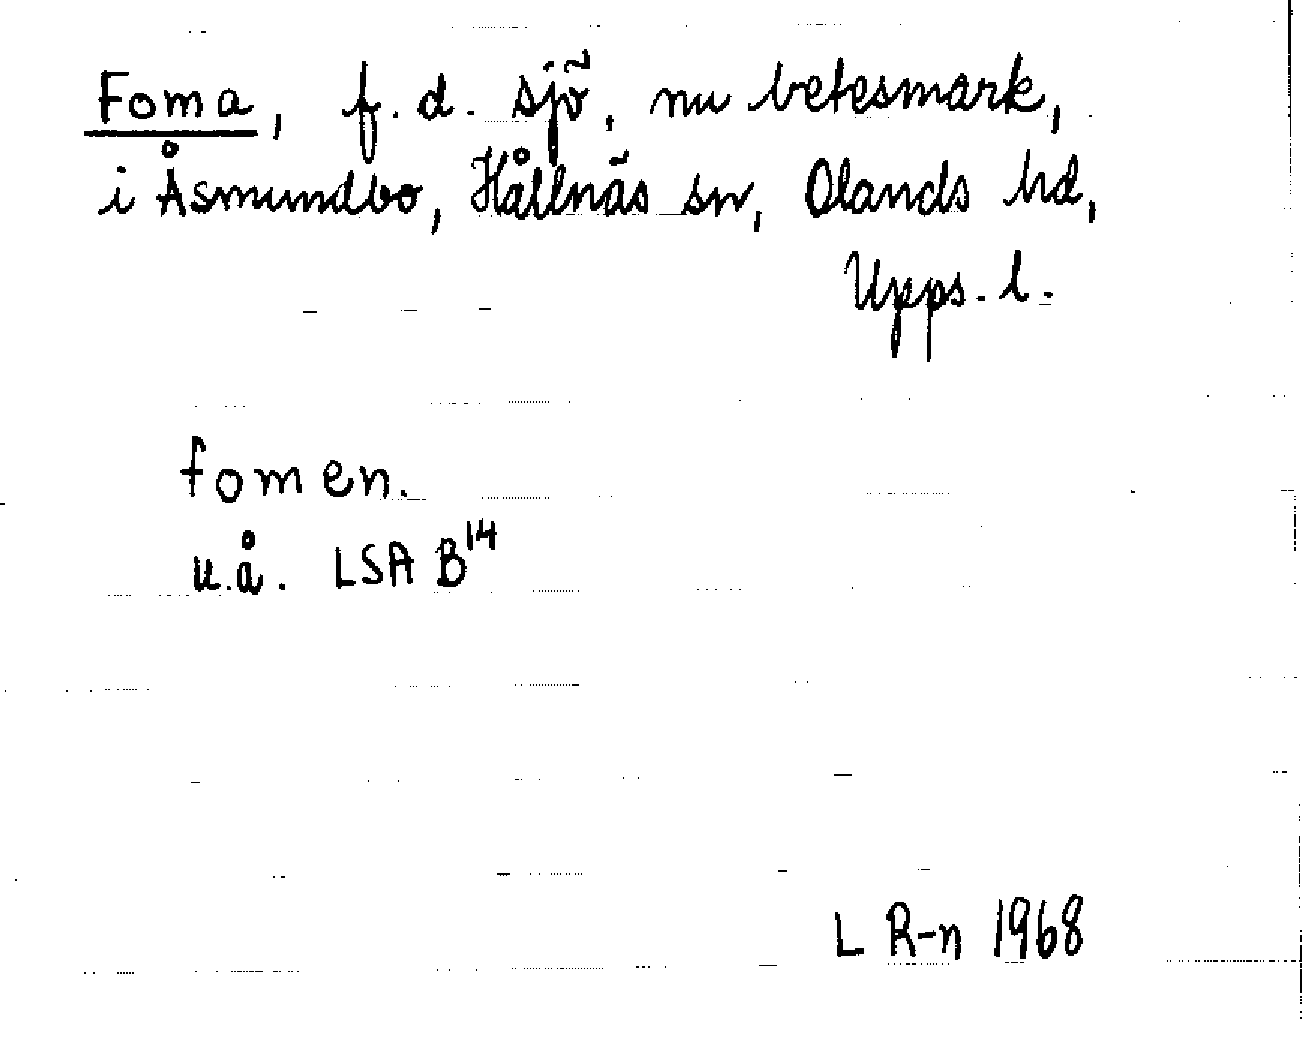 Foma, f.d. sjö, nu betesmark,
i Åsmundbo, Hållnäs sn, Olands hd,
Upps. l.
fomen.
u.å. LSA B14
L R-n 1968